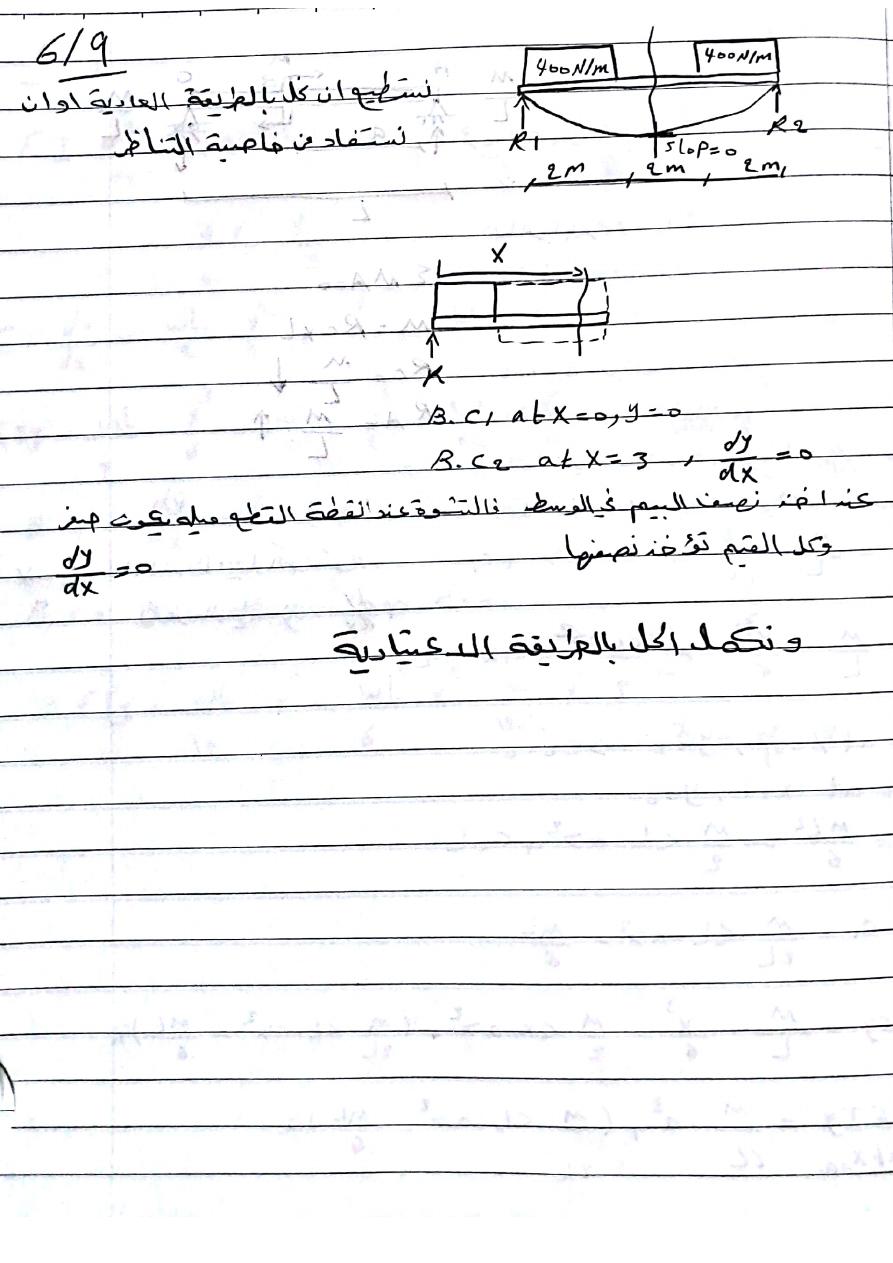 6/9
نستطيع ان نحل بالطريقة العادية او ان
نستفاد من خاصية التناظر
400N/m 400N/m
R1 R2
slop=0
2m 2m 2m
X
R
B.C1 at X=0, y=0
B.C2 at X=3 , dy/dx =0
عند اخذ نصف البيم في الوسط فالتشوة عند القطة القطع ميله يكون صفر
dy/dx =0
وكل القيم تؤخذ نصفها
ونكمل الحل بالطريقة الاعتيادية